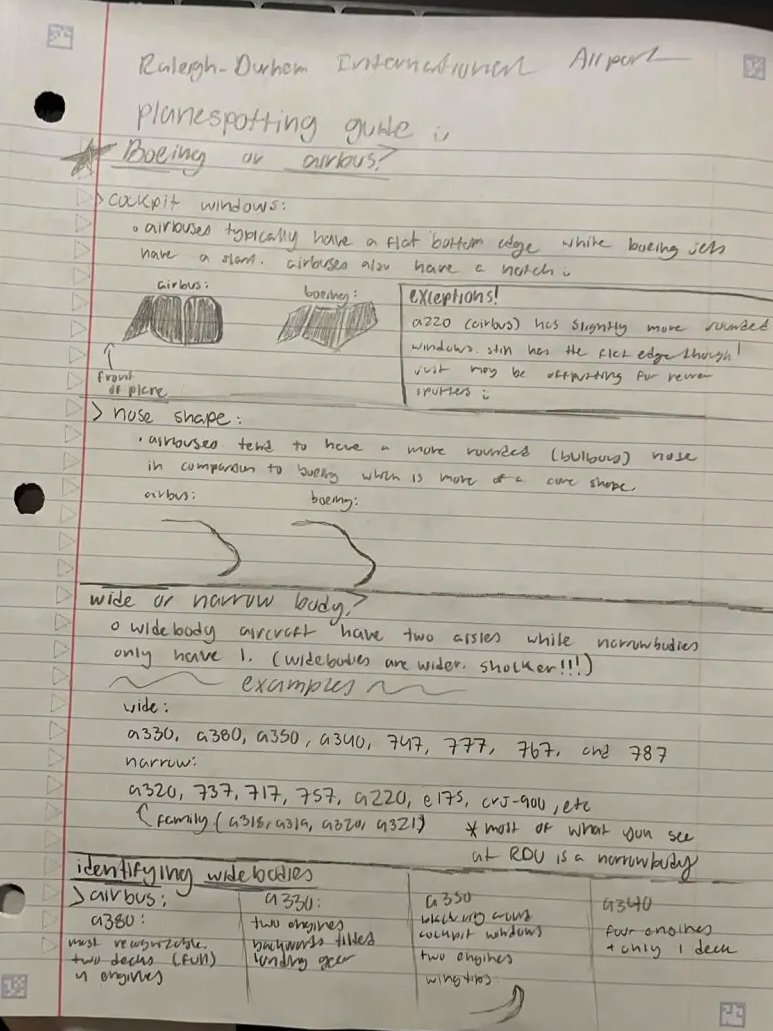 Raleigh-Durham International Airport
planespotting guide :)
Boeing or airbus?
> cockpit windows:
• airbuses typically have a flat bottom edge while boeing jets
have a slant. airbuses also have a notch :)
airbus:
boeing:
front
of plane
exceptions!
a220 (airbus) has slightly more rounded
windows. still has the flat edge though!
just may be offputting for newer
spotters :)
> nose shape:
• airbuses tend to have a more rounded (bulbous) nose
in comparison to boeing which is more of a cone shape.
airbus:
boeing:
wide or narrow body?
o widebody aircraft have two aisles while narrowbodies
only have 1. (widebodies are wider. shocker!!!)
examples
wide:
a330, a380, a350, a340, 747, 777, 767, and 787
narrow:
a320, 737, 717, 757, a220, e175, crj-900, etc
family (a318, a319, a320, a321)
* most of what you see
at RDU is a narrowbody
identifying widebodies
> airbus:
a380:
most recognizable
two decks (full)
4 engines
a330:
two engines
backwards tilted
landing gear
a350
black ring around
cockpit windows
two engines
wingtips
a340
four engines
+ only 1 deck